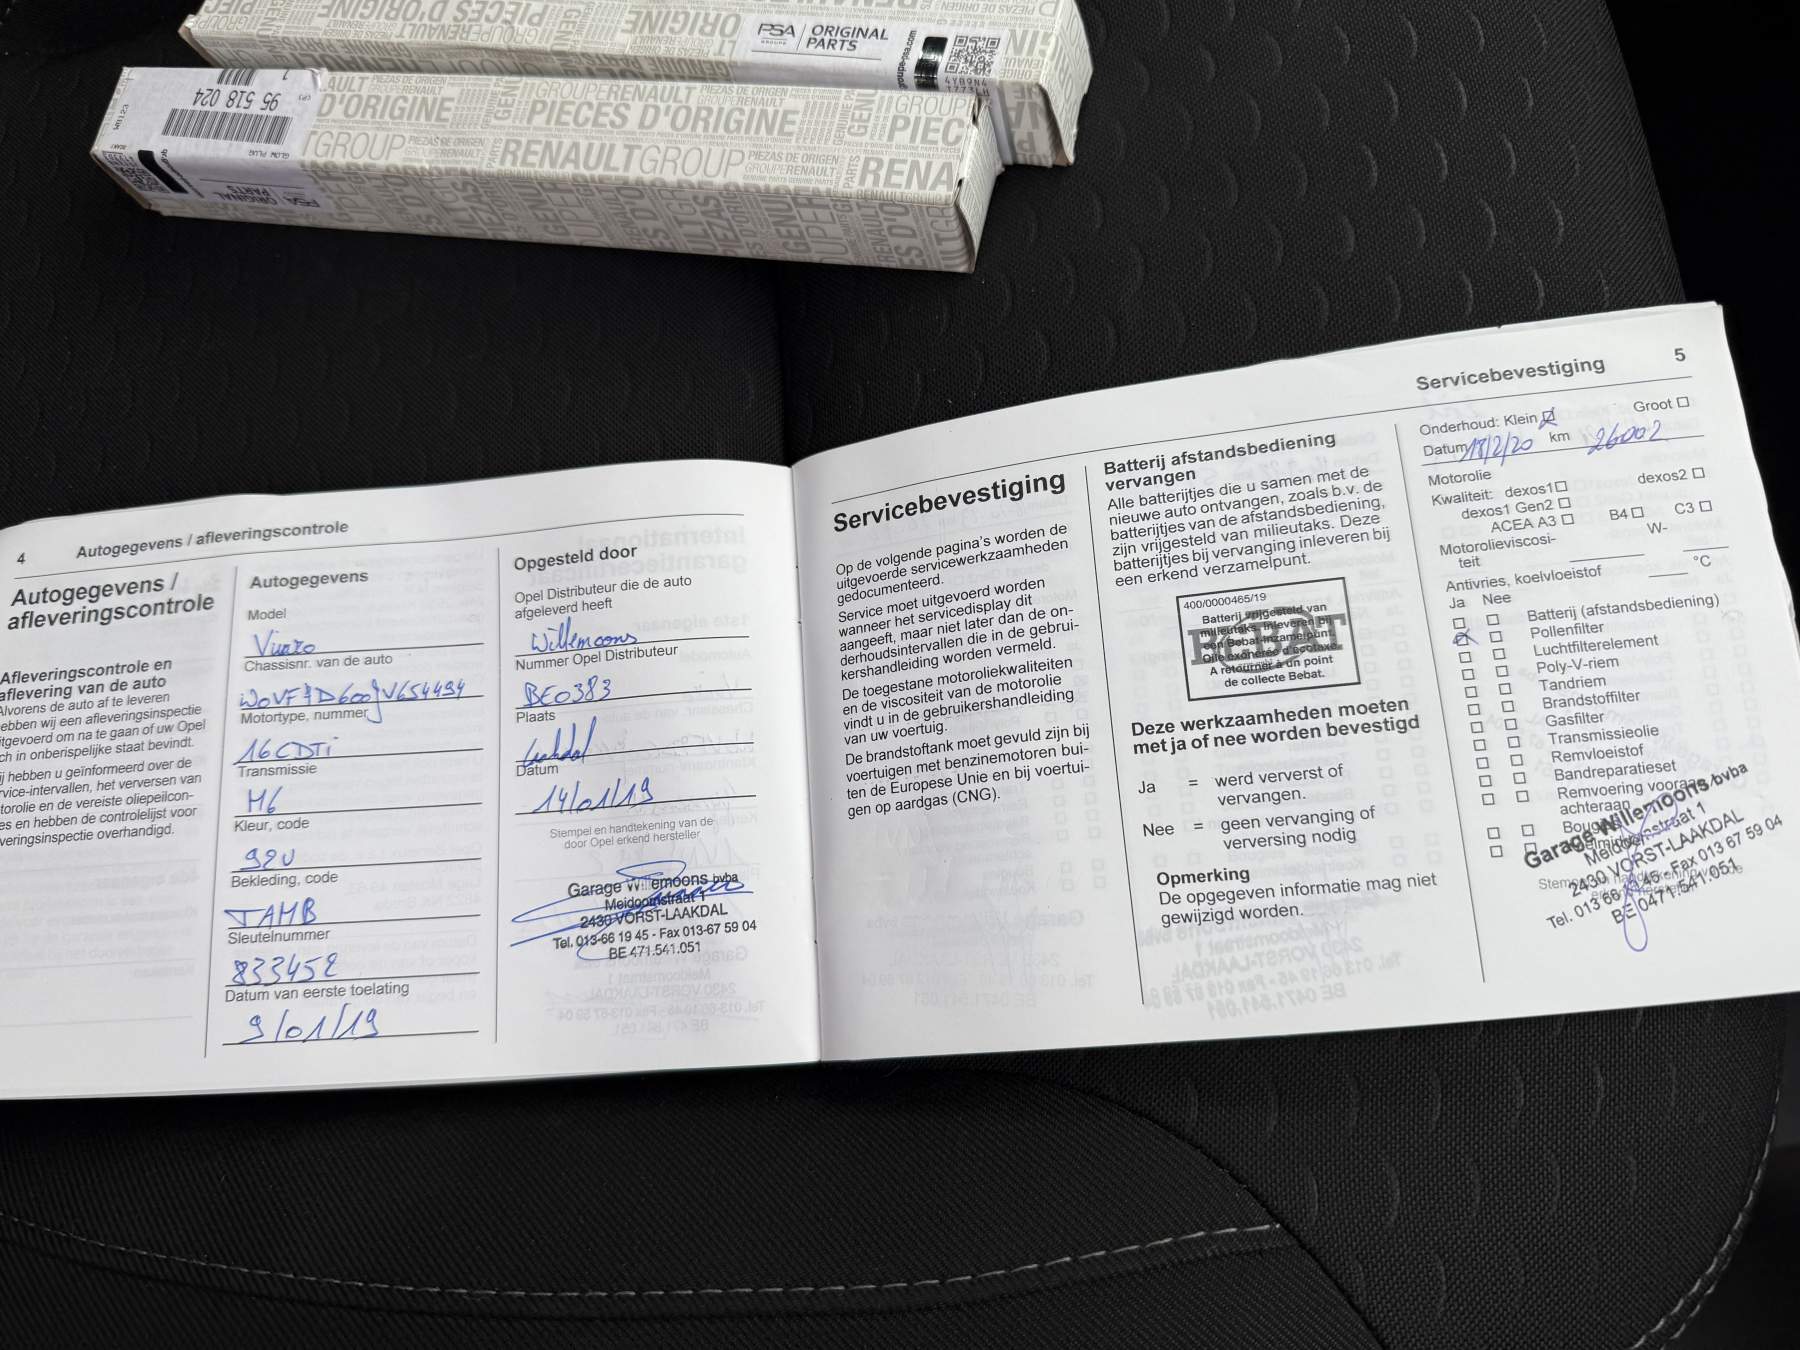 PIÈCES D'ORIGINE
GROUPERENAULT
PSA GROUPE
ORIGINAL PARTS
groupe-psa.com
4YB9N4
95 518 024
GLOW PLUG
PSA
ORIGINAL PARTS
D'ORIGINE
GROUPERENAULT
PIEZAS DE ORIGEN
PIÈCES D'ORIGINE
RENAULTGROUP
PIEZAS DE ORIGEN
GROUPERENAULT
4
Autogegevens / afleveringscontrole
Autogegevens /
afleveringscontrole
Afleveringscontrole en
aflevering van de auto
Alvorens de auto af te leveren
ebben wij een afleveringsinspectie
itgevoerd om na te gaan of uw Opel
ch in onberispelijke staat bevindt.
ij hebben u geïnformeerd over de
rvice-intervallen, het verversen van
torolie en de vereiste oliepeilcon-
es en hebben de controlelijst voor
veringsinspectie overhandigd.
Autogegevens
Model
Vivaro
Chassisnr. van de auto
Motortype, nummer
16CDTi
Transmissie
M6
Kleur, code
92U
Bekleding, code
TAMB
Sleutelnummer
833452
Datum van eerste toelating
9/01/19
Opgesteld door
Opel Distributeur die de auto
afgeleverd heeft
Willemoons
Nummer Opel Distributeur
BE0383
Plaats
Laakdal
Datum
14/01/19
Stempel en handtekening van de
door Opel erkend hersteller
Garage Willemoons bvba
Meidoornstraat 1
2430 VORST-LAAKDAL
Tel. 013-66 19 45 - Fax 013-67 59 04
BE 471.541.051
Servicebevestiging
5
Servicebevestiging
Op de volgende pagina's worden de
uitgevoerde servicewerkzaamheden
gedocumenteerd.
Service moet uitgevoerd worden
wanneer het servicedisplay dit
aangeeft, maar niet later dan de on-
derhoudsintervallen die in de gebrui-
kershandleiding worden vermeld.
De toegestane motoroliekwaliteiten
en de viscositeit van de motorolie
vindt u in de gebruikershandleiding
van uw voertuig.
De brandstoftank moet gevuld zijn bij
voertuigen met benzinemotoren bui-
ten de Europese Unie en bij voertui-
gen op aardgas (CNG).
Batterij afstandsbediening
vervangen
Alle batterijtjes die u samen met de
nieuwe auto ontvangen, zoals b.v. de
batterijtjes van de afstandsbediening,
zijn vrijgesteld van milieutaks. Deze
batterijtjes bij vervanging inleveren bij
een erkend verzamelpunt.
400/0000465/19
BEBAT
Batterij vrijgesteld van
milieutaks. Inleveren bij
een Bebat-inzamelpunt
Pile exonérée d'écotaxe.
A retourner à un point
de collecte Bebat.
Deze werkzaamheden moeten
met ja of nee worden bevestigd
Ja = werd ververst of
vervangen.
Nee = geen vervanging of
verversing nodig
Opmerking
De opgegeven informatie mag niet
gewijzigd worden.
Onderhoud: Klein ☒ Groot ☐
Datum 18/2/20 km 26002
Motorolie
Kwaliteit: dexos1 ☐ dexos2 ☐
dexos1 Gen2 ☐
ACEA A3 ☐ B4 ☐ C3 ☐
Motorolieviscosi-
teit W-
Antivries, koelvloeistof °C
Ja Nee
☐ ☐ Batterij (afstandsbediening)
☒ ☐ Pollenfilter
☐ ☐ Luchtfilterelement
☐ ☐ Poly-V-riem
☐ ☐ Tandriem
☐ ☐ Brandstoffilter
☐ ☐ Gasfilter
☐ ☐ Transmissieolie
☐ ☐ Remvloeistof
☐ ☐ Bandreparatieset
☐ ☐ Remvoering vooraan/
achteraan
☐ ☐ Bougies
Garage Willemoons bvba
Meidoornstraat 1
2430 VORST-LAAKDAL
Tel. 013 66 19 45 - Fax 013 67 59 04
BE 0471.541.051